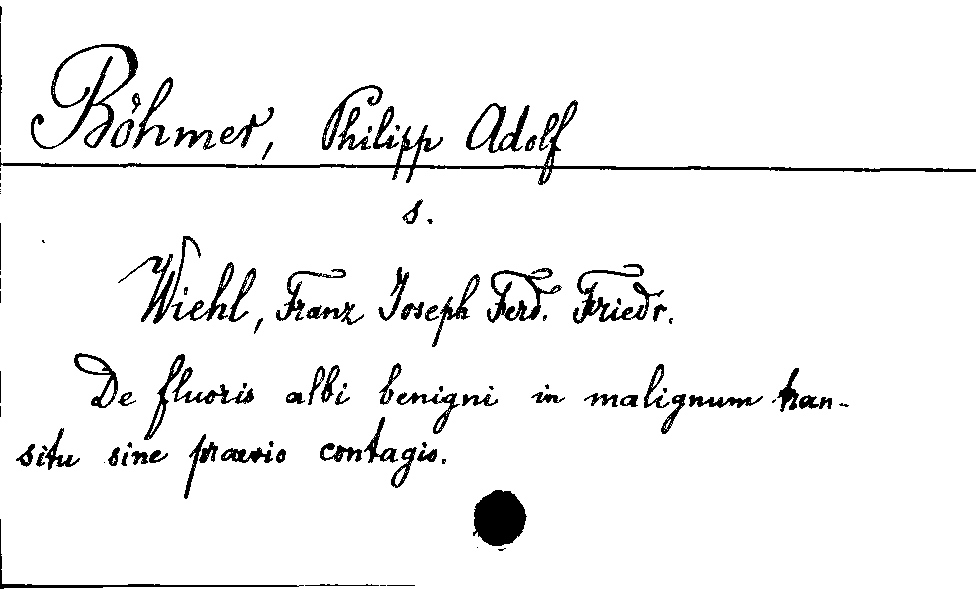 Böhmer, Philipp Adolf
s.
Wiehl, Franz Joseph Ferd. Friedr.
De fluoris albi benigni in malignum tran-
situ sine praevio contagio.